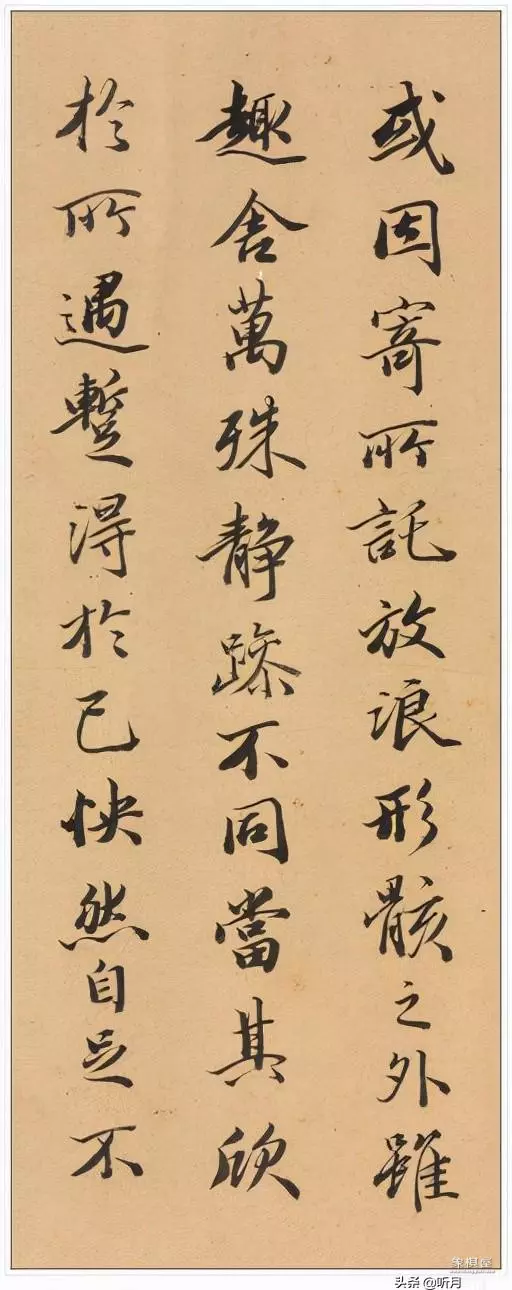 或因寄所託放浪形骸之外雖
趣舍萬殊静躁不同當其欣
於所遇蹔得於己快然自足不
头条@听月